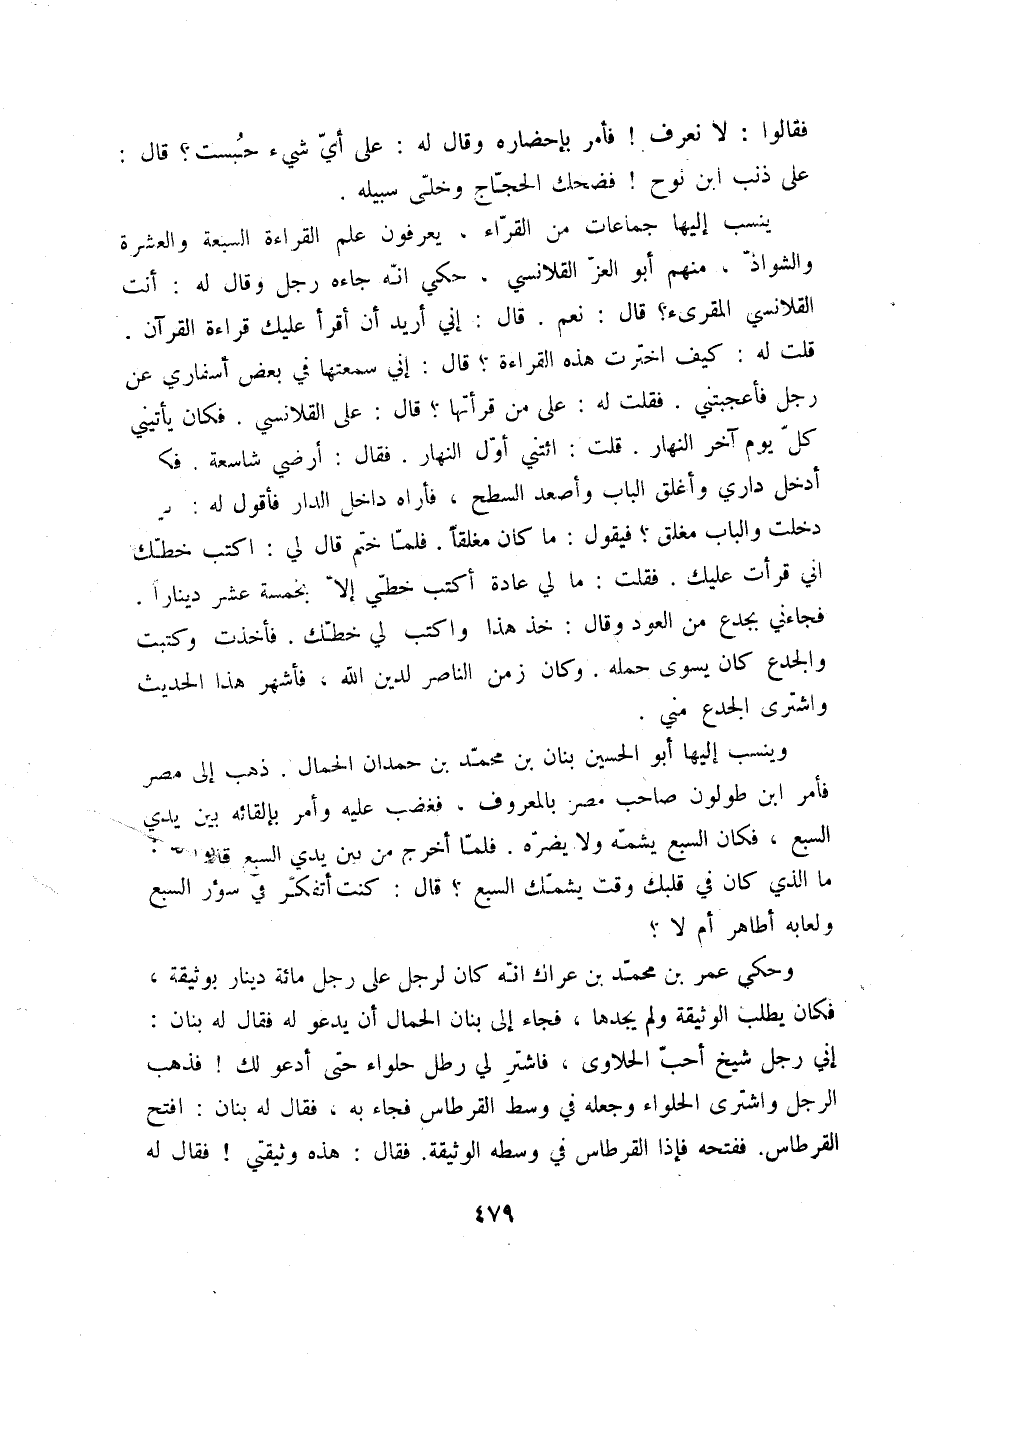 فقالوا : لا نعرف ! فأمر بإحضاره وقال له : على أيّ شيء حُبست ؟ قال :
على ذنب ابن نوح ! فضحك الحجّاج وخلّى سبيله .
ينسب إليها جماعات من القرّاء . يعرفون علم القراءة السبعة والعشرة
والشواذّ . منهم أبو العزّ القلانسي . حكي انّه جاءه رجل وقال له : أنت
القلانسي المقرىء ؟ قال : نعم . قال : إني أريد أن أقرأ عليك قراءة القرآن .
قلت له : كيف اخترت هذه القراءة ؟ قال : إني سمعتها في بعض أسفاري عن
رجل فأعجبتني . فقلت له : على من قرأتها ؟ قال : على القلانسي . فكان يأتيني
كلّ يوم آخر النهار . قلت : ائتني أوّل النهار . فقال : أرضي شاسعة .
أدخل داري وأغلق الباب وأصعد السطح ، فأراه داخل الدار فأقول له :
دخلت والباب مغلق ؟ فيقول : ما كان مغلقاً . فلمّا ختم قال لي : اكتب خطّك
اني قرأت عليك . فقلت : ما لي عادة أكتب خطّي إلاّ بخمسة عشر ديناراً .
فجاءني بجدع من العود وقال : خذ هذا واكتب لي خطّك . فأخذت وكتبت
والجدع كان يسوى حمله . وكان زمن الناصر لدين الله ، فأشهر هذا الحديث
واشترى الجدع مني .
وينسب إليها أبو الحسين بنان بن محمّد بن حمدان الحمال . ذهب إلى مصر
فأمر ابن طولون صاحب مصر بالمعروف . فغضب عليه وأمر بإلقائه بين يدي
السبع ، فكان السبع يشمّه ولا يضرّه . فلمّا أخرج من بين يدي السبع :
ما الذي كان في قلبك وقت يشمّك السبع ؟ قال : كنت أتفكّر في سؤر السبع
ولعابه أطاهر أم لا ؟
وحكي عمر بن محمّد بن عراك انّه كان لرجل على رجل مائة دينار بوثيقة ،
فكان يطلب الوثيقة ولم يجدها ، فجاء إلى بنان الحمال أن يدعو له فقال له بنان :
إني رجل شيخ أحبّ الحلاوى ، فاشترِ لي رطل حلواء حتى أدعو لك ! فذهب
الرجل واشترى الحلواء وجعله في وسط القرطاس فجاء به ، فقال له بنان : افتح
القرطاس . ففتحه فإذا القرطاس في وسطه الوثيقة . فقال : هذه وثيقتي ! فقال له
٤٧٩